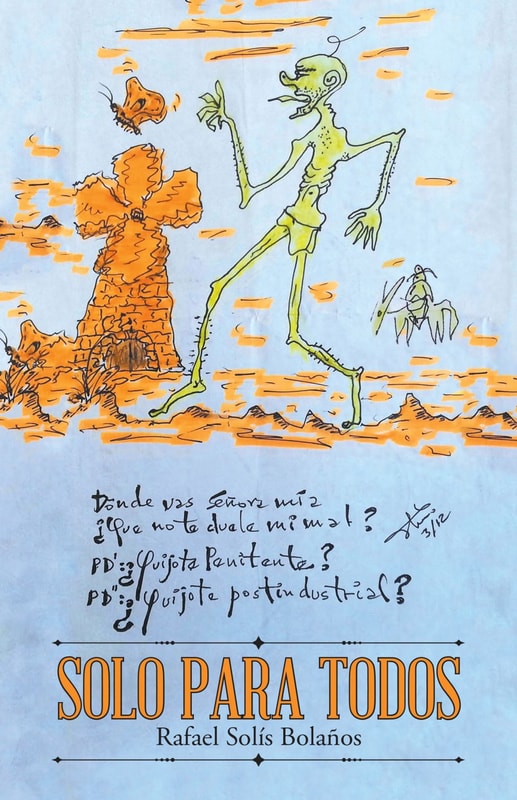 Donde vas Señora mía
¿Que no te duele mi mal?
3/12
PD':¿Quijote Penitente?
PD":¿Quijote postindustrial?
SOLO PARA TODOS
Rafael Solís Bolaños